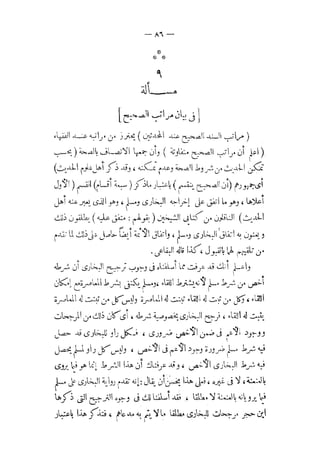 — ٨٦ —
٩
مسـألة
[ في بيان مراتب الصحيح ]
( مراتب السند الصحيح عند المحدثين ) يحترز من مراتبه عند الفقهاء
( اعلم أن مراتب الصحيح متفاوتة ) وأن جمعها الاتصاف بالصحة ( بحسب
تمكن الحديث من شروط الصحة وعدم تمكنه ، وقد ذكر أهل علوم الحديث)
أي جمهورهم (أن الصحيح ينقسم) باعتبار ما ذكر ( سبعة أقسام) القسم ( الأول
أعلاها ، وهو ما اتفق على إخراجه البخارى ومسلم ، وهو الذى يعبر عنه أهل
الحديث ) الناقلون من كتابي الشيخين ( بقولهم : متفق عليه ) يطلقون ذلك
ويعنون به اتفاق البخارى ومسلم ، واتفاق الأئمة أيضاً حاصل على ذلك لما تقدم
من تلقيهم لها بالقبول ، كذا قاله البقاعى .
واعلم أنك قد عرفت مما أسلفناه في وجوب ترجيح البخارى أن شرطه
أخص من شرط مسلم لأنه يشترط اللقاء ، ومسلم يكتفى بشرط المعاصرة مع إمكان
اللقاء ، وكل من ثبت له اللقاء ثبتت له المعاصرة وليس كل من ثبتت له المعاصرة
يثبت له اللقاء ، فرجح البخارى بخصوصية شرطه ، أى كان ذلك من المرجحات
ووجود الأعم فى ضمن الأخص ضرورى ، فكل راو للبخارى قد حصل
فيه شرط مسلم ضرورة وجود الأعم فى الأخص ، وليس كل راو لمسلم يحصل
فيه شرط البخارى الأخص ، وقد عرفناك أن هذا الشرط إنما هو فيما يروى
بالعنعنة ، لا فى غيره ، فعلى هذا يحسن أن يقال : إنه تقدم رواية البخارى على مسلم
فيما يرويانه بالعنعنة لا مطلقا ، فقد أسلفنا لك فى وجوه الترجيح التى ذكرها
ابن حجر مرجحات للبخارى مطلقا ما لا يتم به مدعاهم ، فتذكر هذا باعتبار